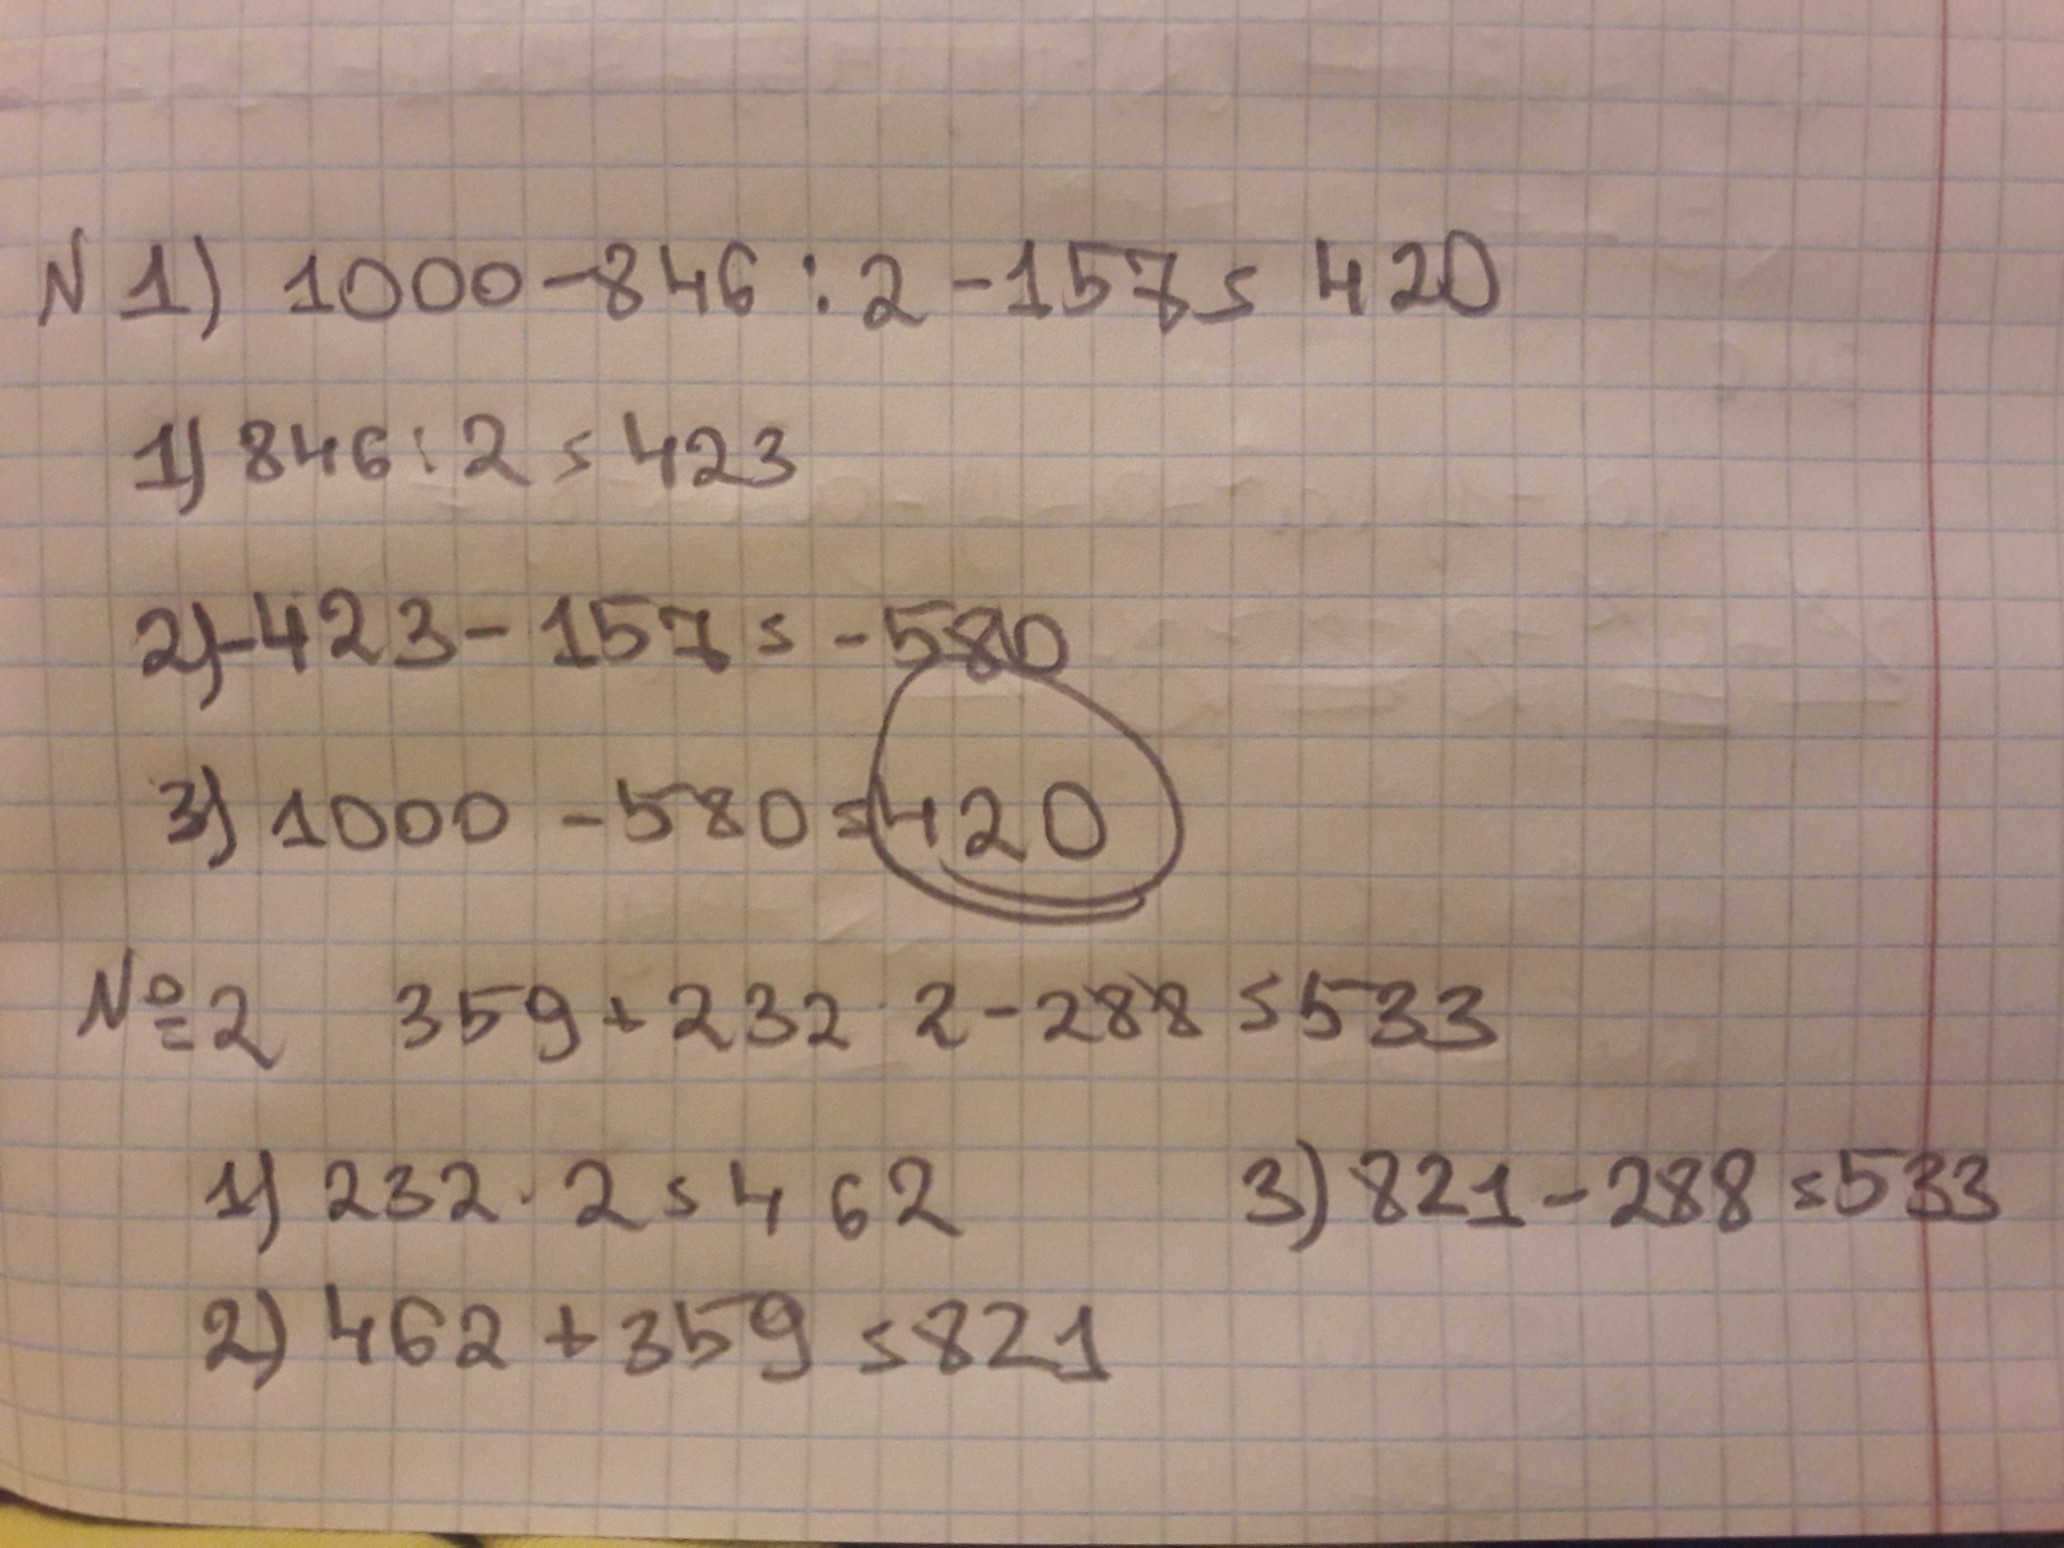 N 1) 1000-846:2-157= 420
1) 846:2=423
2)-423-157=-580
3) 1000-580=420
№2 359+232·2-288=533
1) 232·2=462
3) 821-288=533
2) 462+359=821